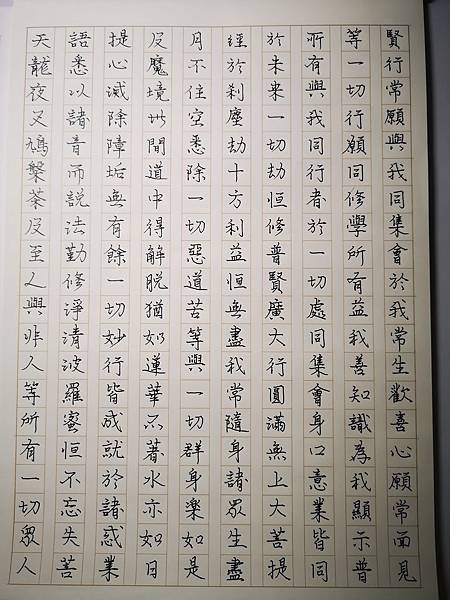 賢行常願與我同集會於我常生歡喜心願常面見
等一切行願同修學所有益我善知識為我顯示普
所有與我同行者於一切處同集會身口意業皆同
於未來一切劫恒修普賢廣大行圓滿無上大菩提
經於剎塵劫十方利益恒無盡我常隨身諸眾生盡
月不住空悉除一切惡道苦等與一切群身樂如是
及魔境世間道中得解脫猶如蓮華不著水亦如日
提心滅除障垢無有餘一切妙行皆成就於諸惑業
語悉以諸音而說法勤修淨清波羅蜜恒不忘失菩
天龍夜叉鳩槃荼及至人與非人等所有一切眾人